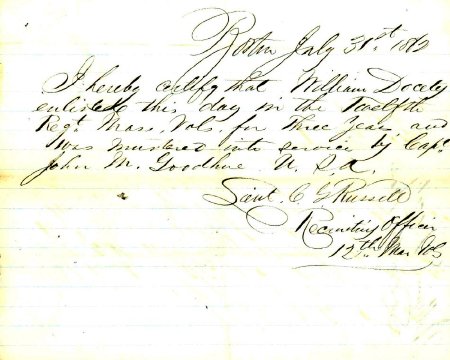 Boston July 31st 1862
I hereby certify that William Docety
enlisted this day in the Twelfth
Regt. Mass. Vols. for Three Years and
was mustered into service by Capt.
John M. Goodhue U. S. A.
Lieut. C G Russell
Recruiting Officer
12th Mas Vols